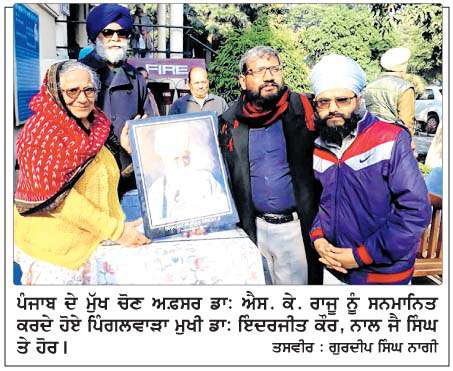 FIRE
ਪੰਜਾਬ ਦੇ ਮੁੱਖ ਚੋਣ ਅਫ਼ਸਰ ਡਾ: ਐਸ. ਕੇ. ਰਾਜੂ ਨੂੰ ਸਨਮਾਨਿਤ
ਕਰਦੇ ਹੋਏ ਪਿੰਗਲਵਾੜਾ ਮੁਖੀ ਡਾ: ਇੰਦਰਜੀਤ ਕੌਰ, ਨਾਲ ਜੈ ਸਿੰਘ
ਤੇ ਹੋਰ। ਤਸਵੀਰ : ਗੁਰਦੀਪ ਸਿੰਘ ਨਾਗੀ